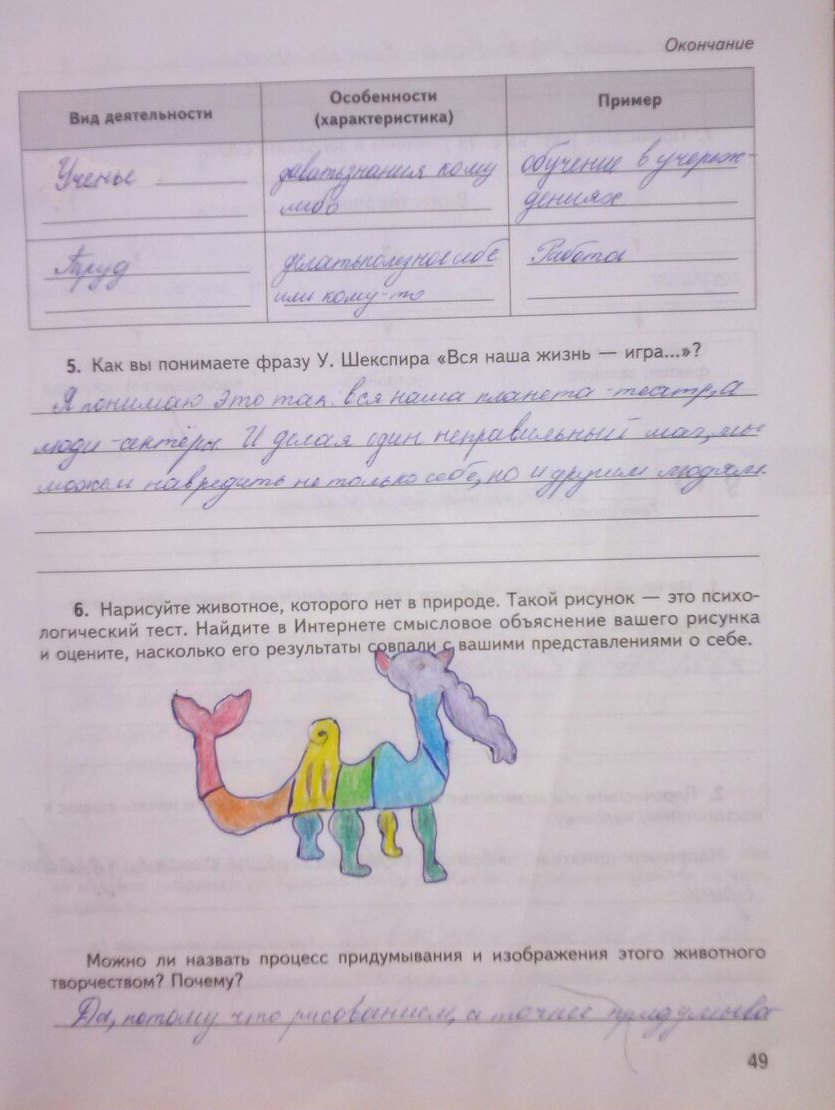 Окончание
Вид деятельности
Особенности
(характеристика)
Пример
Ученье
даватьзнания кому
либо
обучение в учереж-
дениях
Труд
делатьполезное себе
или кому-то
Работа
5. Как вы понимаете фразу У. Шекспира «Вся наша жизнь — игра...»?
Я понимаю это так. вся наша планета-театр, а
люди-актёры И делая один неправильный шаг, мы
можем навредить не только себе, но и другим людям.
6. Нарисуйте животное, которого нет в природе. Такой рисунок — это психо-
логический тест. Найдите в Интернете смысловое объяснение вашего рисунка
и оцените, насколько его результаты совпали с вашими представлениями о себе.
Можно ли назвать процесс придумывания и изображения этого животного
творчеством? Почему?
Да, потому что рисованием, а точнее придумыва
49